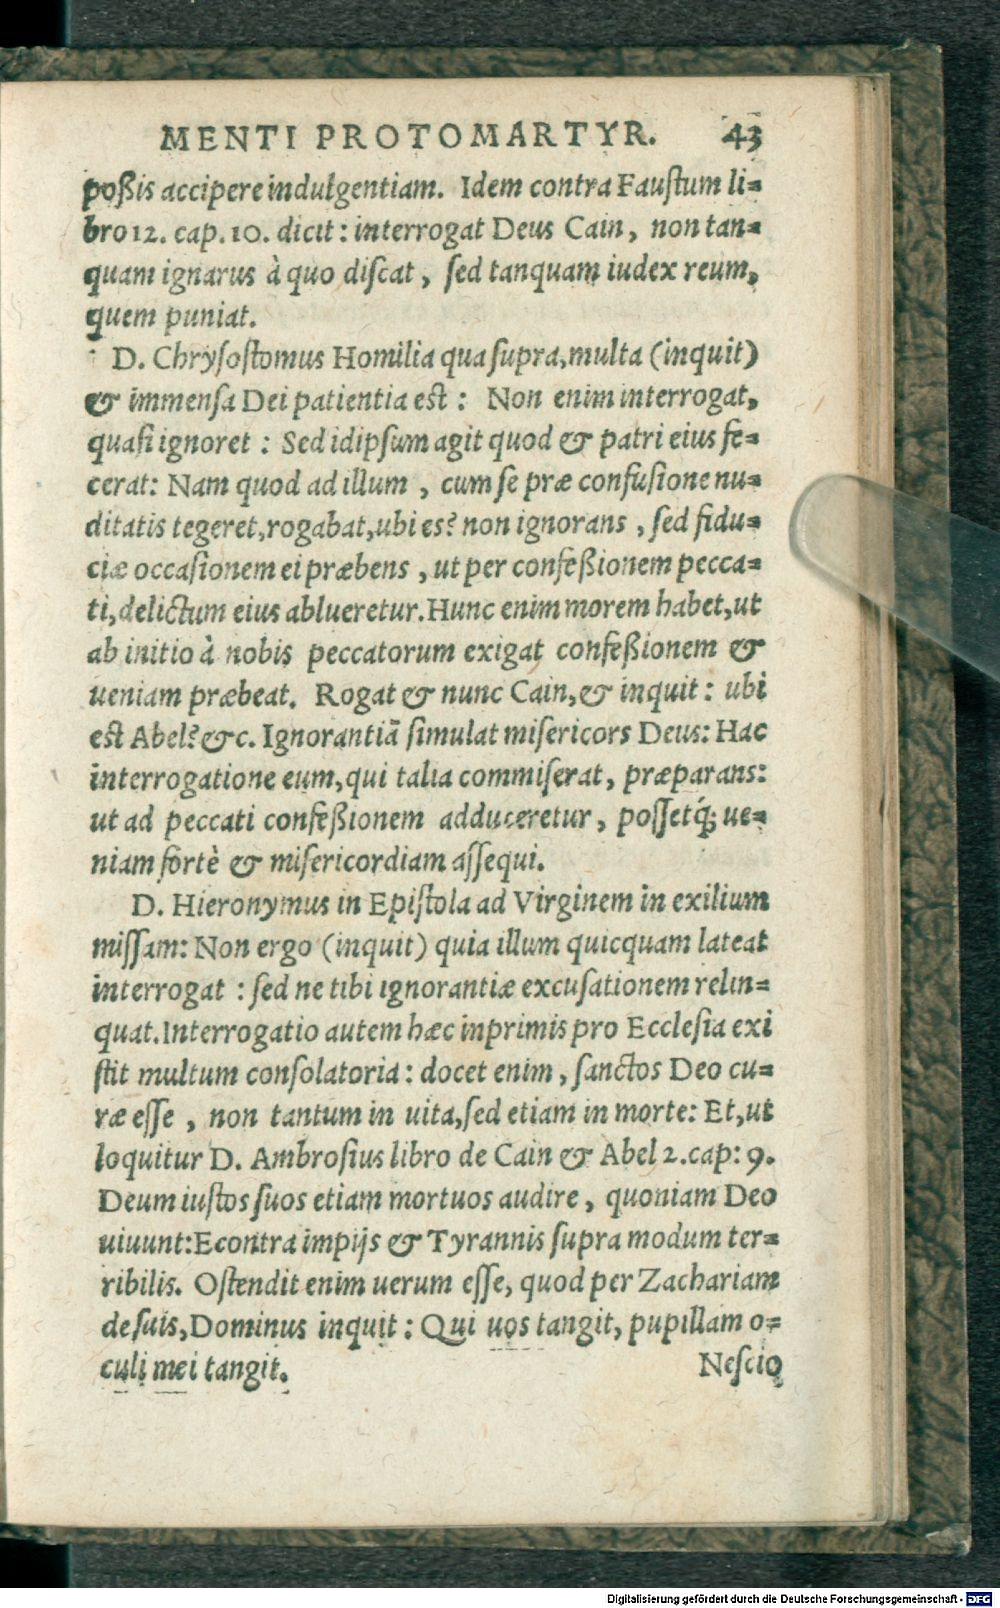 MENTI PROTOMARTYR. 43
poßis accipere indulgentiam. Idem contra Faustum li=
bro 12. cap. 10. dicit: interrogat Deus Cain, non tan=
quam ignarus à quo discat, sed tanquam iudex reum,
quem puniat.
D. Chrysostomus Homilia qua supra, multa (inquit)
& immensa Dei patientia est: Non enim interrogat,
quasi ignoret: Sed idipsum agit quod & patri eius fe=
cerat: Nam quod ad illum, cum se præ confusione nu=
ditatis tegeret, rogabat, ubi es? non ignorans, sed fidu=
ciæ occasionem ei præbens, ut per confeßionem pecca=
ti, delictum eius ablueretur. Hunc enim morem habet, ut
ab initio à nobis peccatorum exigat confeßionem &
ueniam præbeat. Rogat & nunc Cain, & inquit: ubi
est Abel? &c. Ignorantiã simulat misericors Deus: Hac
interrogatione eum, qui talia commiserat, præparans:
ut ad peccati confeßionem adduceretur, possetq́; ue=
niam fortè & misericordiam assequi.
D. Hieronymus in Epistola ad Virginem in exilium
missam: Non ergo (inquit) quia illum quicquam lateat
interrogat: sed ne tibi ignorantiæ excusationem relin=
quat. Interrogatio autem hæc inprimis pro Ecclesia exi
stit multum consolatoria: docet enim, sanctos Deo cu=
ræ esse, non tantum in uita, sed etiam in morte: Et, ut
loquitur D. Ambrosius libro de Cain & Abel 2. cap: 9.
Deum iustos suos etiam mortuos audire, quoniam Deo
uiuunt: Econtra impijs & Tyrannis supra modum ter=
ribilis. Ostendit enim uerum esse, quod per Zachariam
de suis, Dominus inquit: Qui uos tangit, pupillam o=
culi mei tangit. Nescio
Digitalisierung gefördert durch die Deutsche Forschungsgemeinschaft - DFG